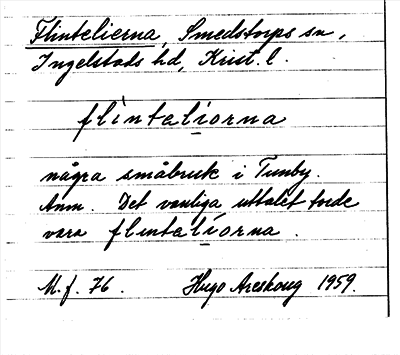 Flintelierna, Smedstorps sn,
Ingelstads hd, Krist. l.
flintaliorna
några småbruk i Tunby.
Anm. Det vanliga uttalet torde
vara flintaliorna.
M. f. 76. Hugo Areskoug 1959.